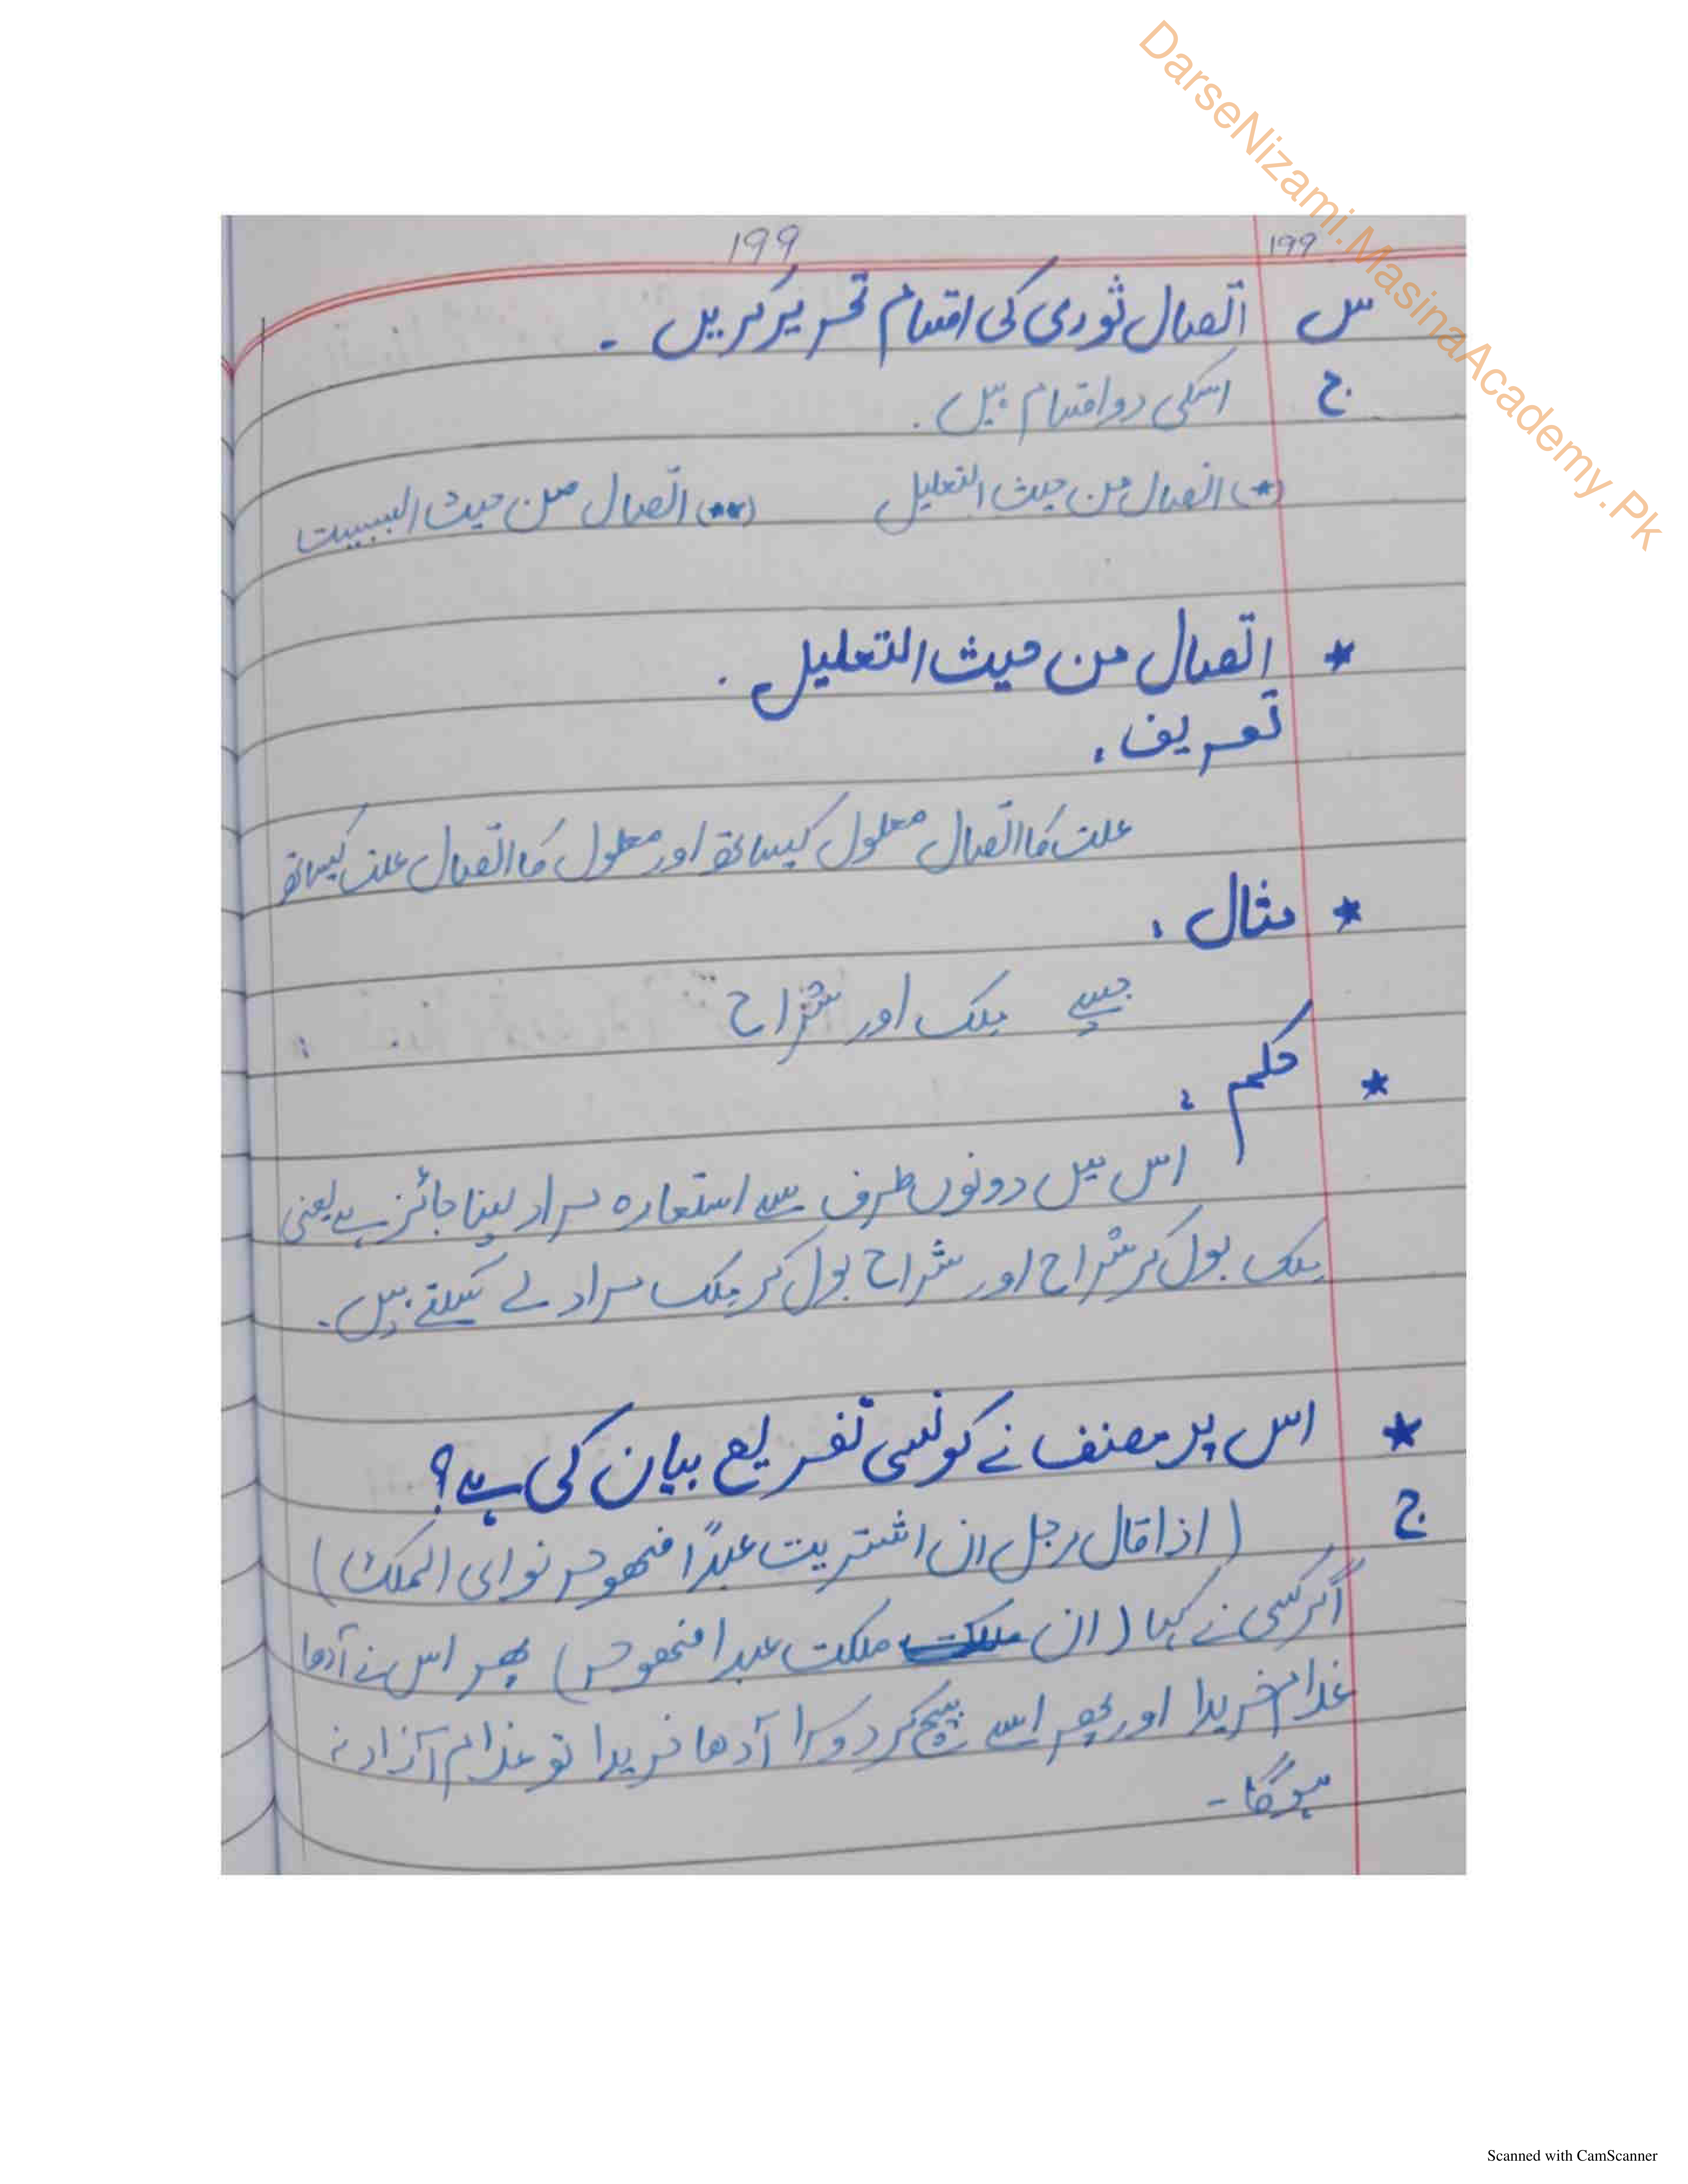 DarseNizami.MasinaAcademy.Pk
199 199
س اتصال ثوری کی اقسام تحریر کریں ۔
ج اسکی دو اقسام ہیں ۔
(*) اتصال من حیث التعلیل (**) اتصال من حیث السببیت
* اتصال من حیث التعلیل .
تعریف .
علت کا اتصال معلول کیساتھ اور معلول کا اتصال علت کیساتھ
* مثال :
جیسے ملک اور شراح
* حکم :
اس میں دونوں طرف سے استعارہ مراد لینا جائز ہے یعنی
ملک بول کر شراح اور شراح بول کر ملک مراد لے سکتے ہیں ۔
* اس پر مصنف نے کونسی تفریع بیان کی ہے؟
ج (اذا قال رجل ان اشتریت عبدًا فھو حر نوای الملک)
اگر کسی نے کہا (ان ملکت عبدا فھو حر) پھر اس نے آدھا
غلام خریدا اور پھر اسے بیچ کر دوسرا آدھا خریدا تو غلام آزاد نہ
ہوگا ۔
Scanned with CamScanner